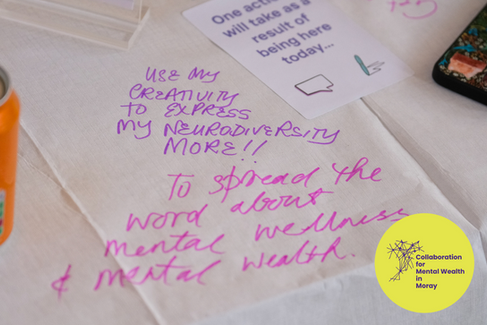 One action
will take as a
result of
being here
today...
USE MY
CREATIVITY
TO EXPRESS
MY NEURODIVERSITY
MORE!!
To spread the
word about
mental wellness
& mental wealth.
Collaboration
for
Mental Wealth
in
Moray